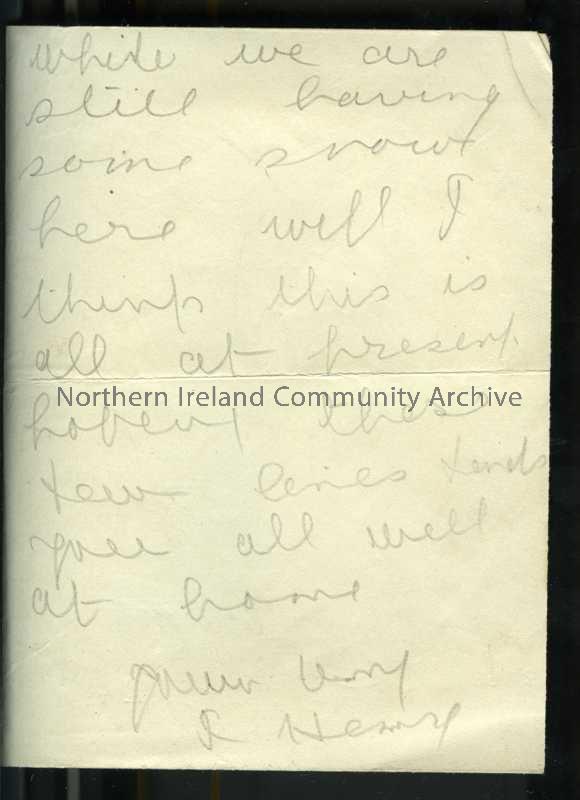 while we are
still having
some snow
here well I
think this is
all at present
Northern Ireland Community Archive
hopeing these
few lines finds
you all well
at home
your
Henry